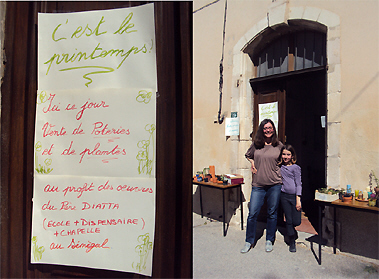 C'est le
printemps!
Ici ce jour
Vente de Poteries
et de plantes
au profit des oeuvres
du Père DIATTA
(ECOLE + DISPENSAIRE)
+ CHAPELLE
au Sénégal